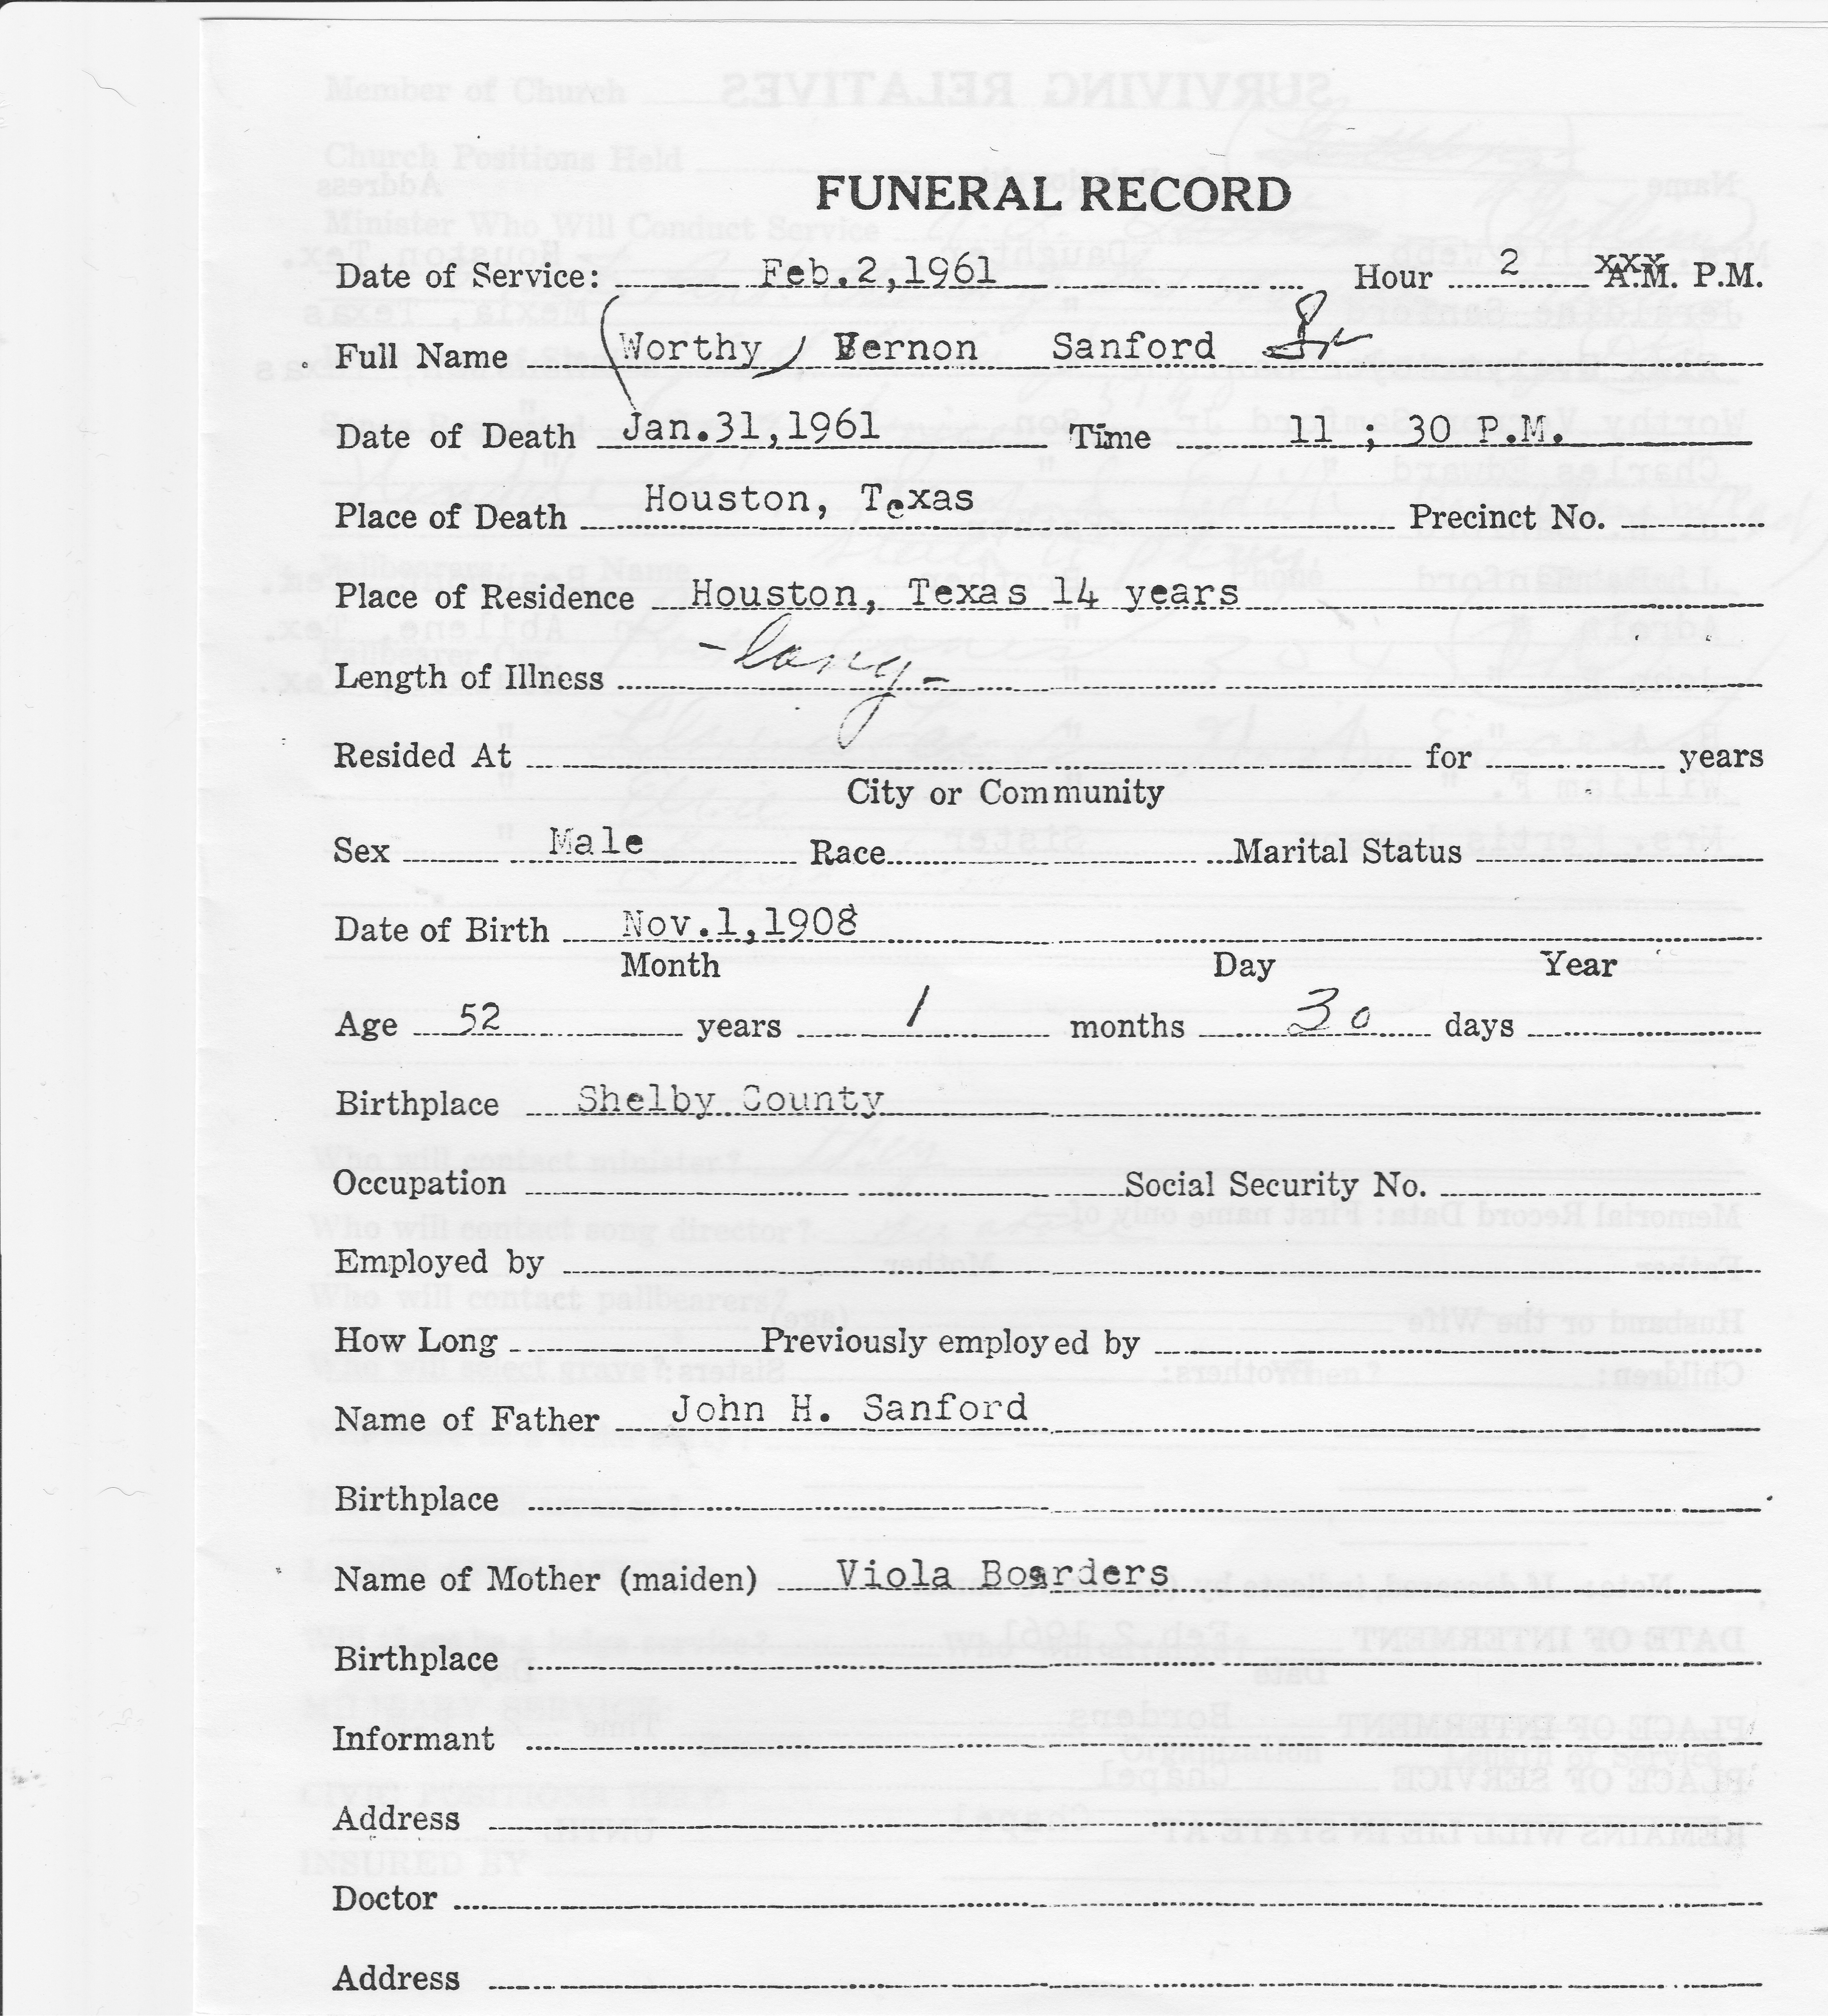 FUNERAL RECORD
Date of Service: Feb.2,1961 Hour 2 A.M. P.M.
Full Name (Worthy) Vernon Sanford Sr
Date of Death Jan.31,1961 Time 11 ; 30 P.M.
Place of Death Houston, Texas Precinct No.
Place of Residence Houston, Texas 14 years
Length of Illness - long -
Resided At for years
City or Community
Sex Male Race Marital Status
Date of Birth Nov.1,1908
Month Day Year
Age 52 years 1 months 30 days
Birthplace Shelby County
Occupation Social Security No.
Employed by
How Long Previously employed by
Name of Father John H. Sanford
Birthplace
Name of Mother (maiden) Viola Boarders
Birthplace
Informant
Address
Doctor
Address